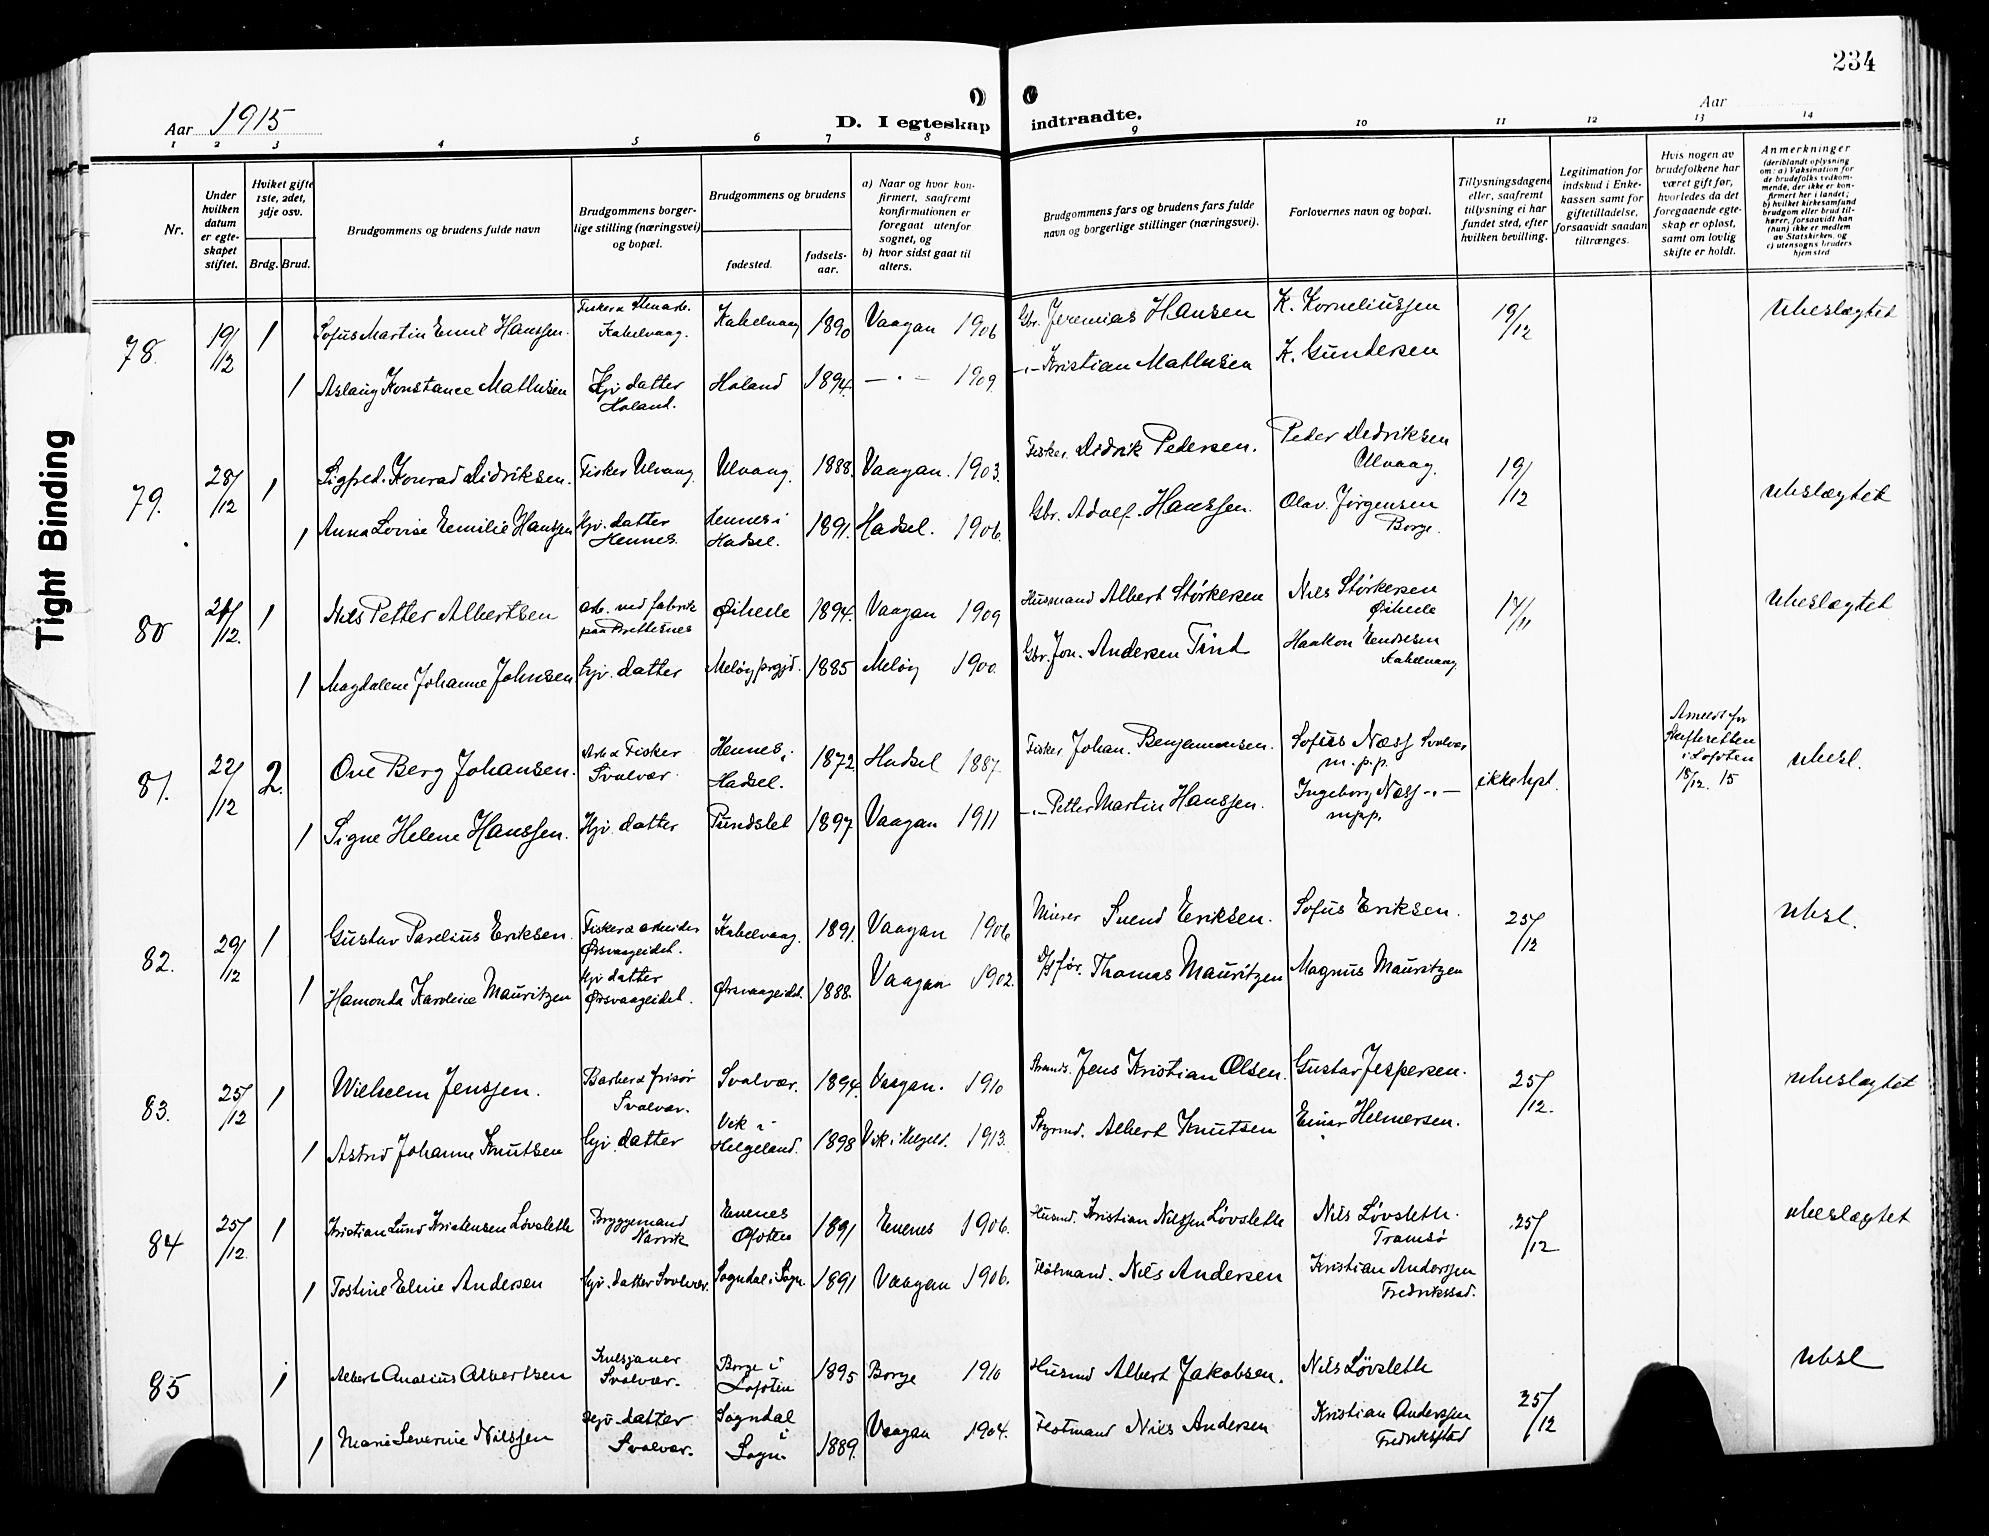 234
Aar 1915
D. I egteskap indtraadte.
Aar
1 2 3 4 5 6 7 8 9 10 11 12 13 14
Nr.
Under hvilken datum er egteskapet stiftet.
Hviket gifte 1ste, 2det, 3dje osv.
Brdg. Brud.
Brudgommens og brudens fulde navn
Brudgommens borgerlige stilling (næringsvei) og bopæl.
Brudgommens og brudens
fødested.
fødselsaar.
a) Naar og hvor konfirmert, saafremt konfirmationen er foregaat utenfor sognet, og
b) hvor sidst gaat til alters.
Brudgommens fars og brudens fars fulde navn og borgerlige stillinger (næringsvei).
Forlovernes navn og bopæl.
Tillysningsdagene eller, saafremt tillysning ei har fundet sted, efter hvilken bevilling.
Legitimation for indskud i Enkekassen samt for giftetilladelse, forsaavidt saadan tiltrænges.
Hvis nogen av brudefolkene har været gift før, hvorledes da det foregaaende egteskap er opløst, samt om lovlig skifte er holdt.
Anmerkninger
(deriblandt oplysning om: a) Vaksination for de brudefolks vedkommende, der ikke er konfirmert her i landet;
b) hvilket kirkesamfund brudgom eller brud tilhører, forsaavidt han (hun) ikke er medlem av Statskirken, og
c) utensogns bruders hjemsted
78. 19/12 1 Sofus Martin Emil Hanssen. Kabelvaag. Kabelvaag 1890 Vaagan 1906 Gbr. Jeremias Hansen K. Korneliussen 19/12 Ubeslægtet
1 Aslaug Konstance Mathisen Hjv. datter Høland. Høland 1894. — " — 1909 — " — Kristian Mathisen K. Gundersen
79. 28/12 1 Sigfred. Konrad Didriksen. Fisker Ulvaag. Ulvaag. 1888. Vaagan. 1903. Fisker. Didrik Pedersen. Peder Didriksen Ulvaag. 19/12 ubeslægtet
1 Anna Lovise Emilie Hanssen Hjv. datter Hennes. Hennes i Hadsel. 1891. Hadsel. 1906. Gbr. Adolf. Hanssen. Olav. Jørgensen Borge.
80 /12. 1 Nils Petter Albertsen arb. ved fabrik paa Brettesnes Øihele 1894. Vaagan 1909 Husmand Albert Størkersen Nils Størkersen Øihele 14/11 Ubeslægtet
1 Magdalene Johanne Johnsen hjv. datter Meløy prgjd. 1885 Meløy 1900. Gbr. Jon. Andersen Haakon Endresen Kabelvaag
81. 22/12 2. Ove Berg Johansen. Arb & Fisker Svolvær. Hennes i Hadsel. 1872 Hadsel 1887 Fisker Johan. Benjaminsen. Sofus Næss Svolvær m. p. p. ikke lyst. Anmeldt for Skifteretten i Lofoten 18/12. 15 ubesl.
1 Signe Helene Hanssen. Hjv. datter Pundslet 1897 Vaagan 1911 — " — Petter Martin Hanssen. Ingeborg Næss — " — m.p.p.
82. 29/12 1 Gustav Parelius Eriksen. Fisker & arbeider Ørsvaageidet. Kabelvaag. 1891. Vaagan 1906 Murer Svend Eriksen. Sofus Eriksen. 25/12 ubsl.
1 Hamonda Karoline Mauritzen Hjv datter Ørsvaageidet. Ørsvaageidet. 1888. Vaagan 1902. Thomas Mauritzen Magnus Mauritzen
83. 25/12 1 Wilhelm Jenssen. Barber & frisør Svolvær. Svolvær. 1894. Vaagan. 1910 Jens Kristian Olsen. Gustav Jespersen. 25/12. ubeslægtet
1 Astrid Johanne Knutsen hjv. datter Vik i Helgeland. 1898 Vik i Helgeld. 1913. Styrmd. Albert Knutsen Einar Helmersen.
84 25/12. 1 Kristian Lund Kristensen Løvsleth Bryggemand Narvik Evenes Ofoten 1891 Evenes 1906. Husmd. Kristian Nilssen Løvsleth Nils Løvsleth. Tromsø 25/12 ubeslægtet
1 Tostine Eline Andersen hjv. datter Svolvær. Sogndal i Sogn 1891 Vaagan 1906. Flotmand. Nils Andersen Kristian Anderssen Fredriksstad.
85 1 Albert Analius Albertsen Kulsjauer Svolvær. Borge i Lofoten 1895 Borge 1910 Husmd Albert Jakobsen. Nils Løvsleth 25/12 ubsl
1 Marie Severine Nilssen Hjv. datter Svolvær. Sogndal i Sogn. 1889. Vaagan 1904. Flotmand Nils Andersen Kristian Anderssen Fredriksstad
Tight Binding